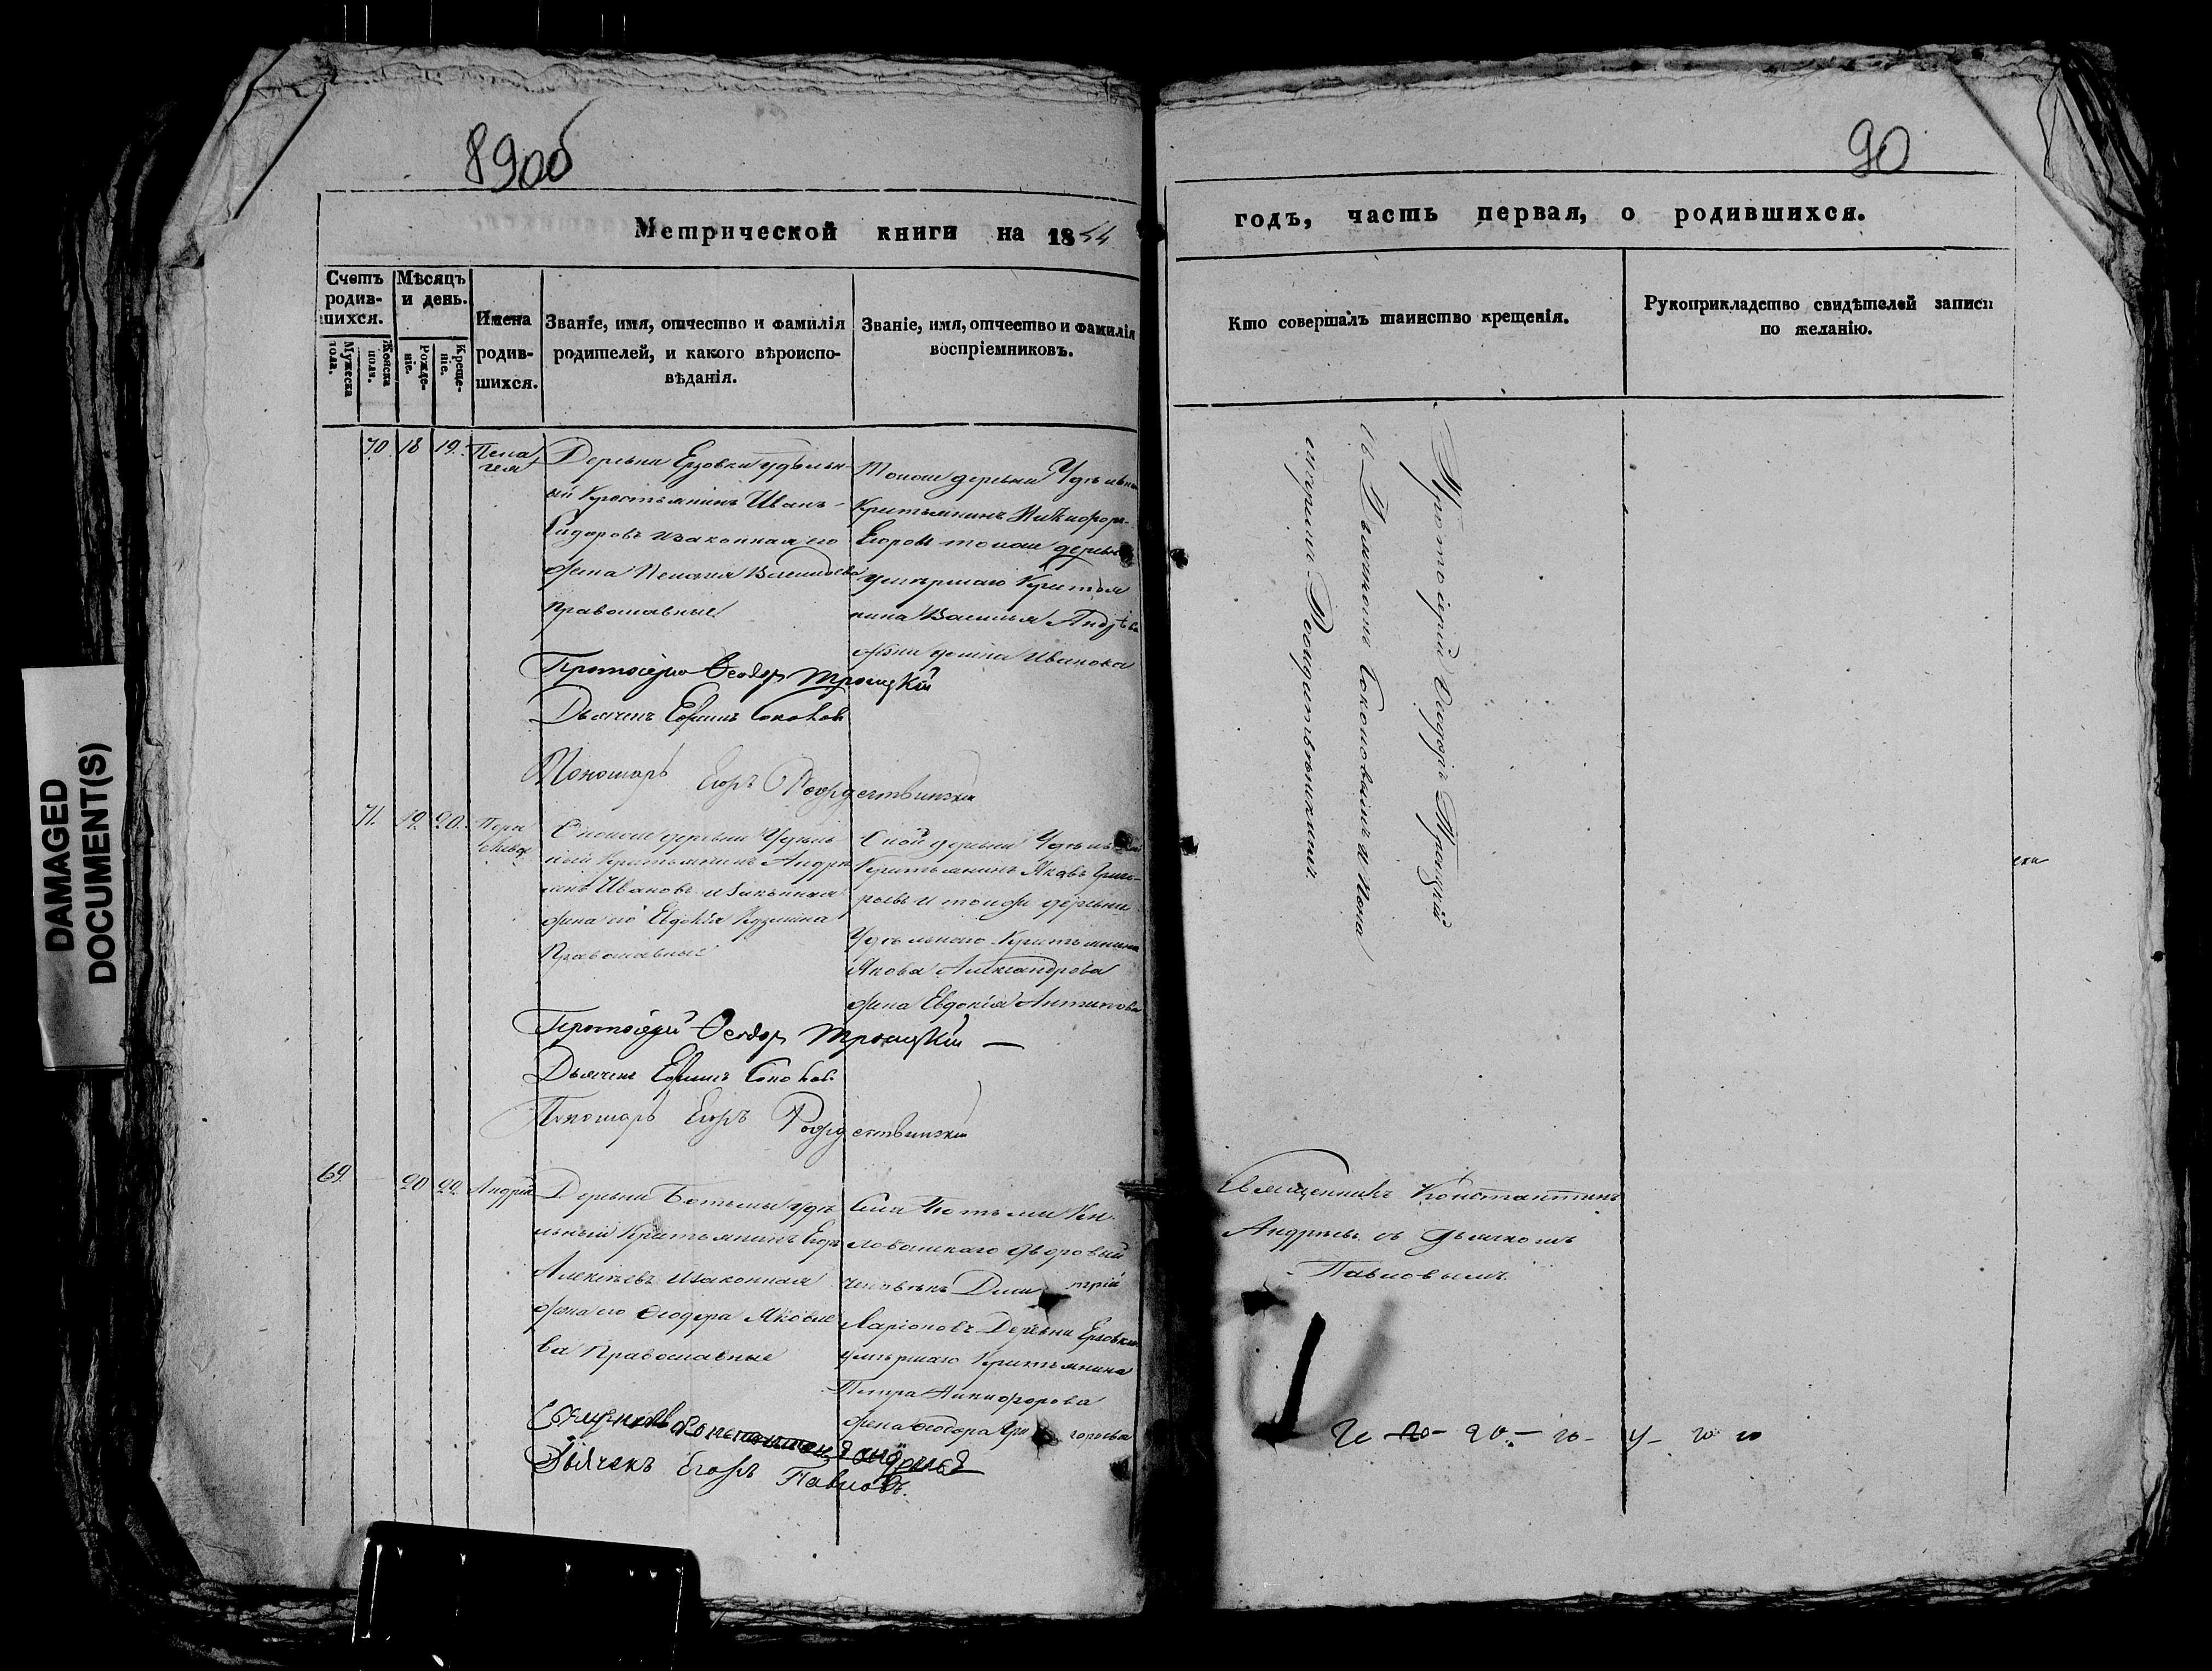 89об
90
Метрической книги на 1844
годъ, часть первая, о родившихся.
Счетъ родив-
шихся.
Мужеска
пола.
Женска
пола.
Мѣсяцъ
и день.
Рожде-
ніе.
Креще-
ніе.
Имена
родив-
шихся.
Званіе, имя, отчество и фамилія
родителей, и какого вѣроиспо-
вѣданія.
Званіе, имя, отчество и фамилія
воспріемниковъ.
Кто совершалъ таинство крещенія.
Рукоприкладство свидѣтелей записи
по желанію.
70 18 19.
Пела
гея
Деревни Ерзовки удѣльн
ый Крестьянинъ Иванъ
Сидоровъ и законная его
жена Пелагея
православные
Тойже деревни
Крестьянинъ Никифоръ
Егоровъ тойже деревни
умершаго Крестья
нина Василья
жена Иванова
Протоіерей Ѳеодоръ Троицкій
Дьячекъ Ефимъ Соколов
Пономарь Егоръ Рождественскій
Протоіерей Ѳеодоръ Троицкій
съ Дьячкомъ Соколовымъ и Поно
маремъ Рождественскимъ.
71. 19. 20.
Пара
скева
деревни Удѣль
ный Крестьянинъ Андре
Ивановъ и законная
жена его Евдокія Кузмина
Православные
деревни
Крестьянинъ Яковъ Григо-
рьевъ и тойже деревни
Удѣльнаго Крестьянина
Якова Александрова
жена Евдокія Антипова
Протоіерей Ѳеодоръ Троицкій
Дьячекъ Ефимъ Соколов
Пономарь Егоръ Рождественскій
69. 20 22.
Андрей
Деревни удѣ
льный Крестьянинъ Егоръ
Алексѣевъ и законная
жена его Ѳеодора Яковле
ва Православные
Села
дворовый
человѣкъ Дми трій
Ларіоновъ Деревни Ерзовки
умершаго Крестьянина
Петра Никифорова
жена Ѳеодора Гри горьева
Священникъ Константинъ
Андреевъ съ дьячкомъ
Павловымъ.
Священникъ Константинъ Андреевъ
Дьячекъ Егоръ Павловъ.
DAMAGED
DOCUMENT(S)